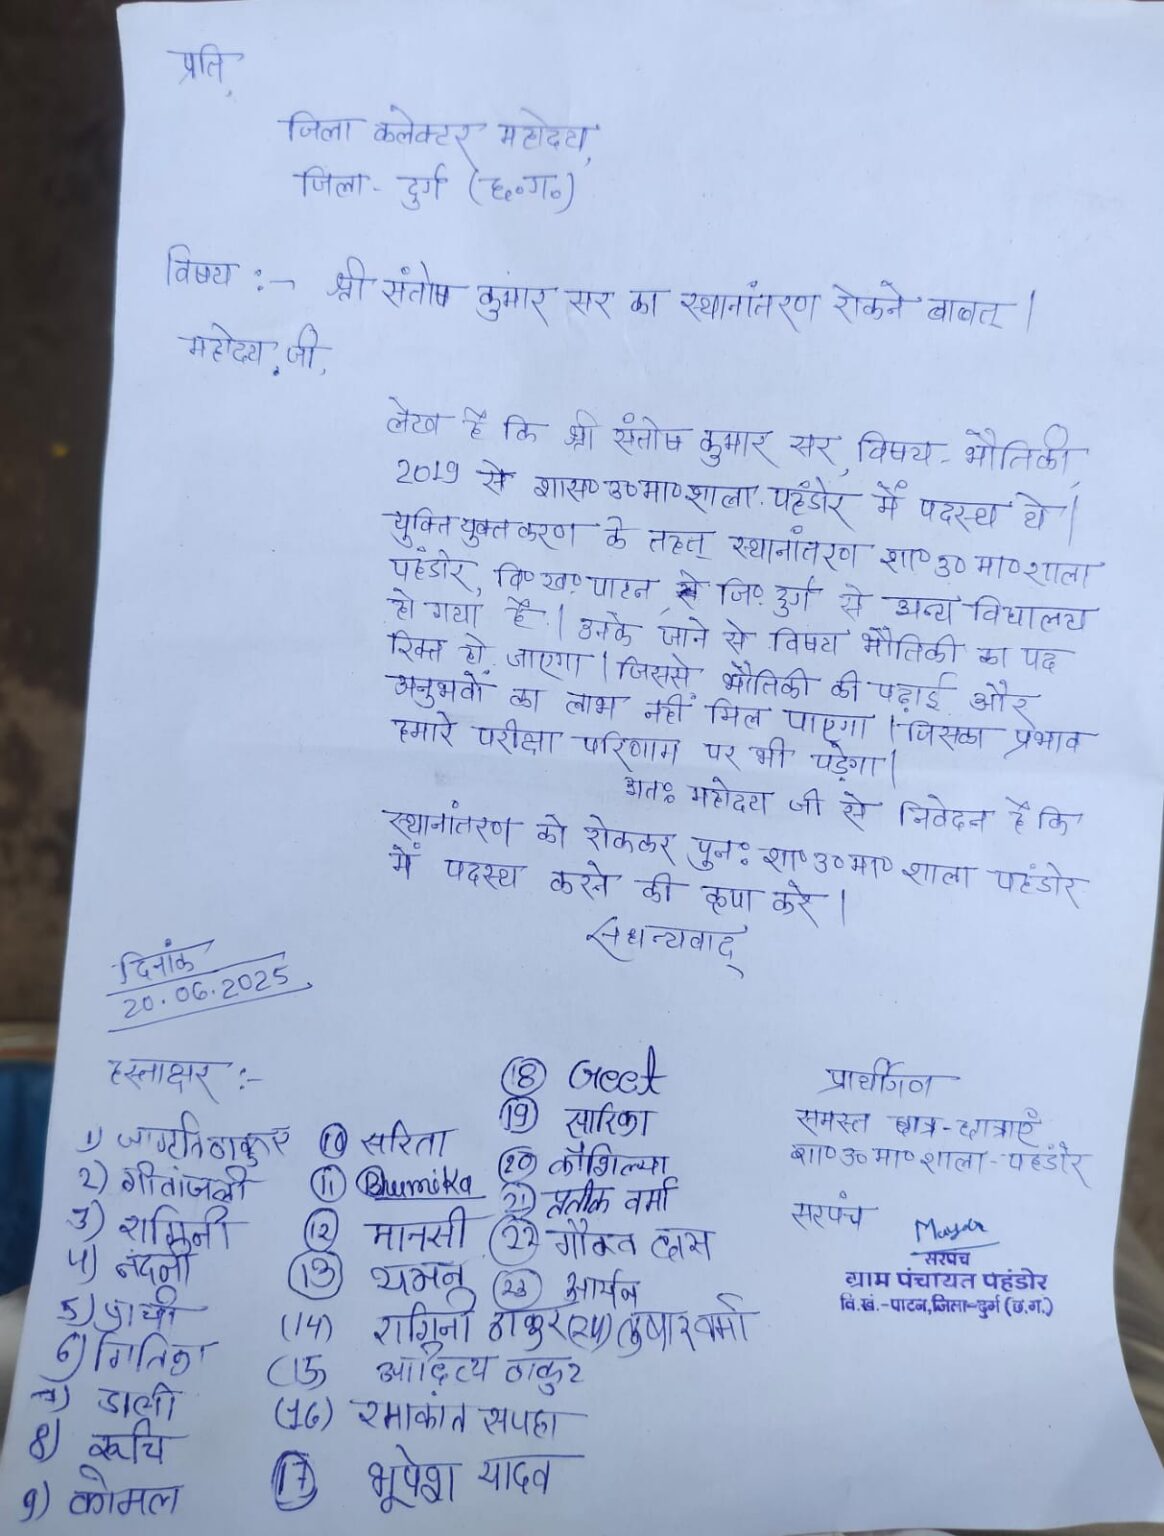 प्रति,
जिला कलेक्टर महोदय,
जिला - दुर्ग (छ॰ग॰)
विषय :- श्री संतोष कुमार सर का स्थानांतरण रोकने बाबत् |
महोदय जी,
लेख है कि श्री संतोष कुमार सर, विषय - भौतिकी,
2019 से शास० उ०मा०शाला पहंडोर में पदस्थ थे |
युक्तियुक्तकरण के तहत् स्थानांतरण शा० उ० मा० शाला
पहंडोर, वि० ख० पाटन से जि० दुर्ग से अन्य विद्यालय
हो गया है | उनके जाने से विषय भौतिकी का पद
रिक्त हो जाएगा | जिससे भौतिकी की पढ़ाई और
अनुभवों का लाभ नहीं मिल पाएगा | जिसका प्रभाव
हमारे परीक्षा परिणाम पर भी पड़ेगा |
अतः महोदय जी से निवेदन है कि
स्थानांतरण को रोककर पुनः शा० उ० मा० शाला पहंडोर
में पदस्थ करने की कृपा करे |
सधन्यवाद्
दिनांक
20.06.2025
हस्ताक्षर :-
1) जागृति ठाकुर
2) गीतांजली
3) रागिनी
4) नंदनी
5) प्राची
6) गितिका
7) डाली
8) रूचि
9) कोमल
10 सरिता
11 Bhumika
12 मानसी
13 यमन
(14) रागिनी ठाकुर
(15 आदित्य ठाकुर
(16) रमाकांत सपहा
17 भूपेश यादव
18 Geet
19 सारिका
20 कौशिल्या
21 प्रतीक वर्मा
22 गौकव दास
23 आर्यन
(24) तुषार वर्मा
प्रार्थीगण
समस्त छात्र-छात्राएँ
शा० उ० मा० शाला - पहंडोर
सरपंच
सरपंच
ग्राम पंचायत पहंडोर
वि.खं.-पाटन, जिला-दुर्ग (छ.ग.)